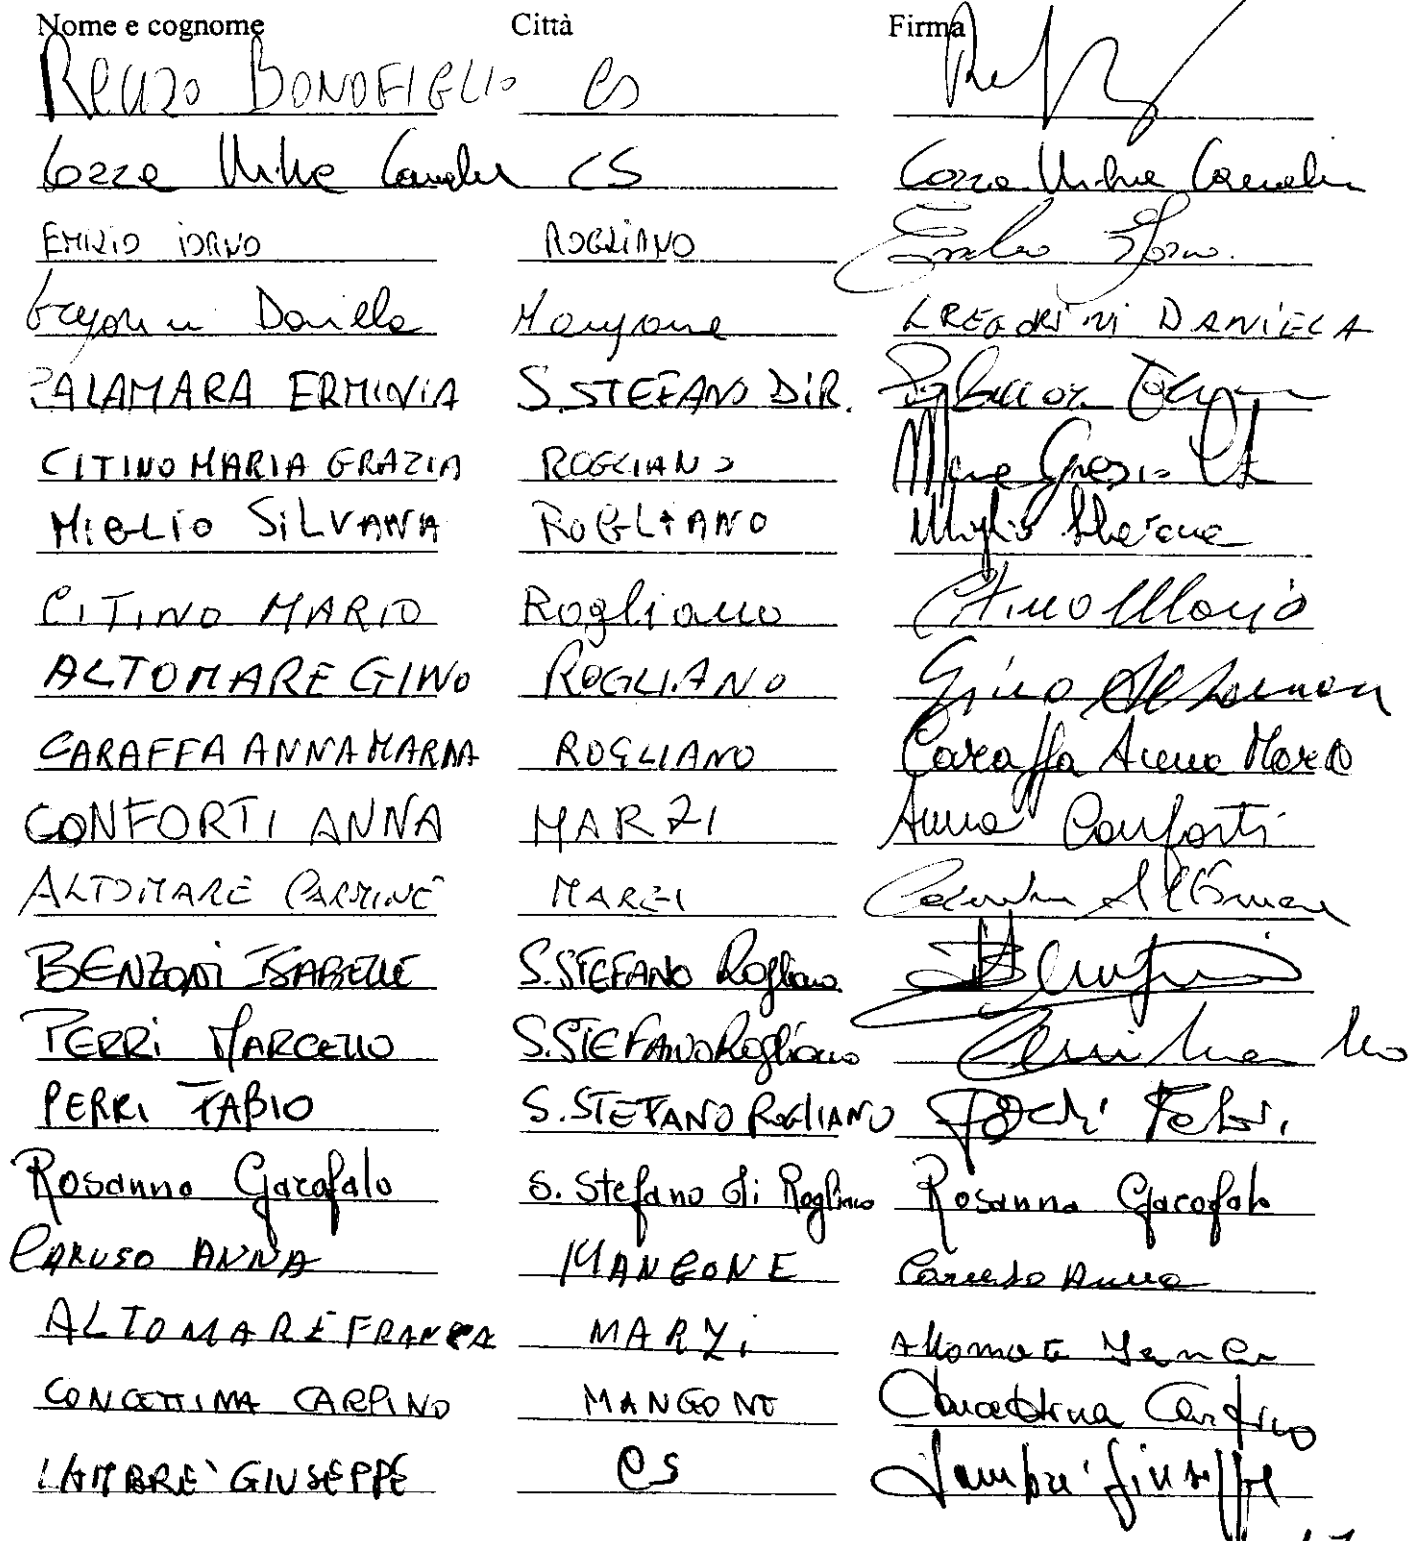 Nome e cognome Città Firma
Renzo BONOFIGLIO CS
Cozza CS Cozza
EMILIO IORNO ROGLIANO Emilio Iorno
Daniela Mangone GREGORINI DANIELA
PALAMARA ERMINIA S. STEFANO DIR.
CITINO MARIA GRAZIA ROGLIANO Maria Grazia
MIGLIO SILVANA ROGLIANO Miglio Silvana
CITINO MARIO Rogliano Citino Mario
ALTOMARE GINO ROGLIANO Gino Altomare
CARAFFA ANNA MARIA ROGLIANO Caraffa Anna Maria
CONFORTI ANNA MARZI Anna Conforti
ALTOMARE CARMINE MARZI Carmine Altomare
BENZONI ISABELLE S. STEFANO Rogliano
PERRI MARCELLO S. STEFANO Rogliano
PERRI FABIO S. STEFANO ROGLIANO Perri Fabio
Rosanna Garofalo S. Stefano di Rogliano Rosanna Garofalo
CARUSO ANNA MANGONE Caruso Anna
ALTOMARE FRANCA MARZI Altomare Franca
CONCETTINA CARPINO MANGONE Concettina Carpino
LAMBRE' GIUSEPPE CS Lambrè Giuseppe